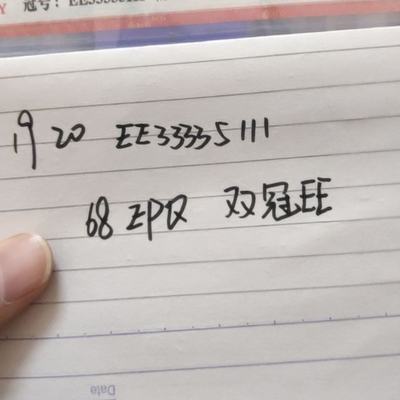 冠号:EE33335111
19 20 EE33335111
68 EPQ 双冠EE
Date